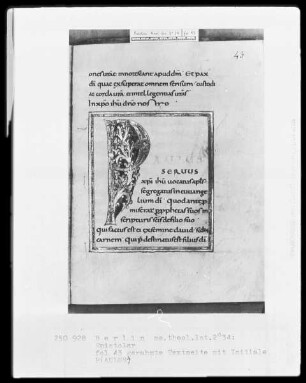 45
onesuae innotescant apud dm Et pax
di quae exsuperat omnem sensum custodi
at corda ura et intellegentias uras
In xpo ihu dno nro
P
SERUUS
xpi ihu uocatus apls
segregatus in euuange
lium di quod ante p
miserat per prophetas suos in
scripturis scis de filio suo
qui factus est ei ex semine dauid secundum
carnem qui pdestinatus est filius di
250 908 Berlin ms.theol.lat.2°34:
Epistolar
fol 45 gerahmte Textseite mit Initiale